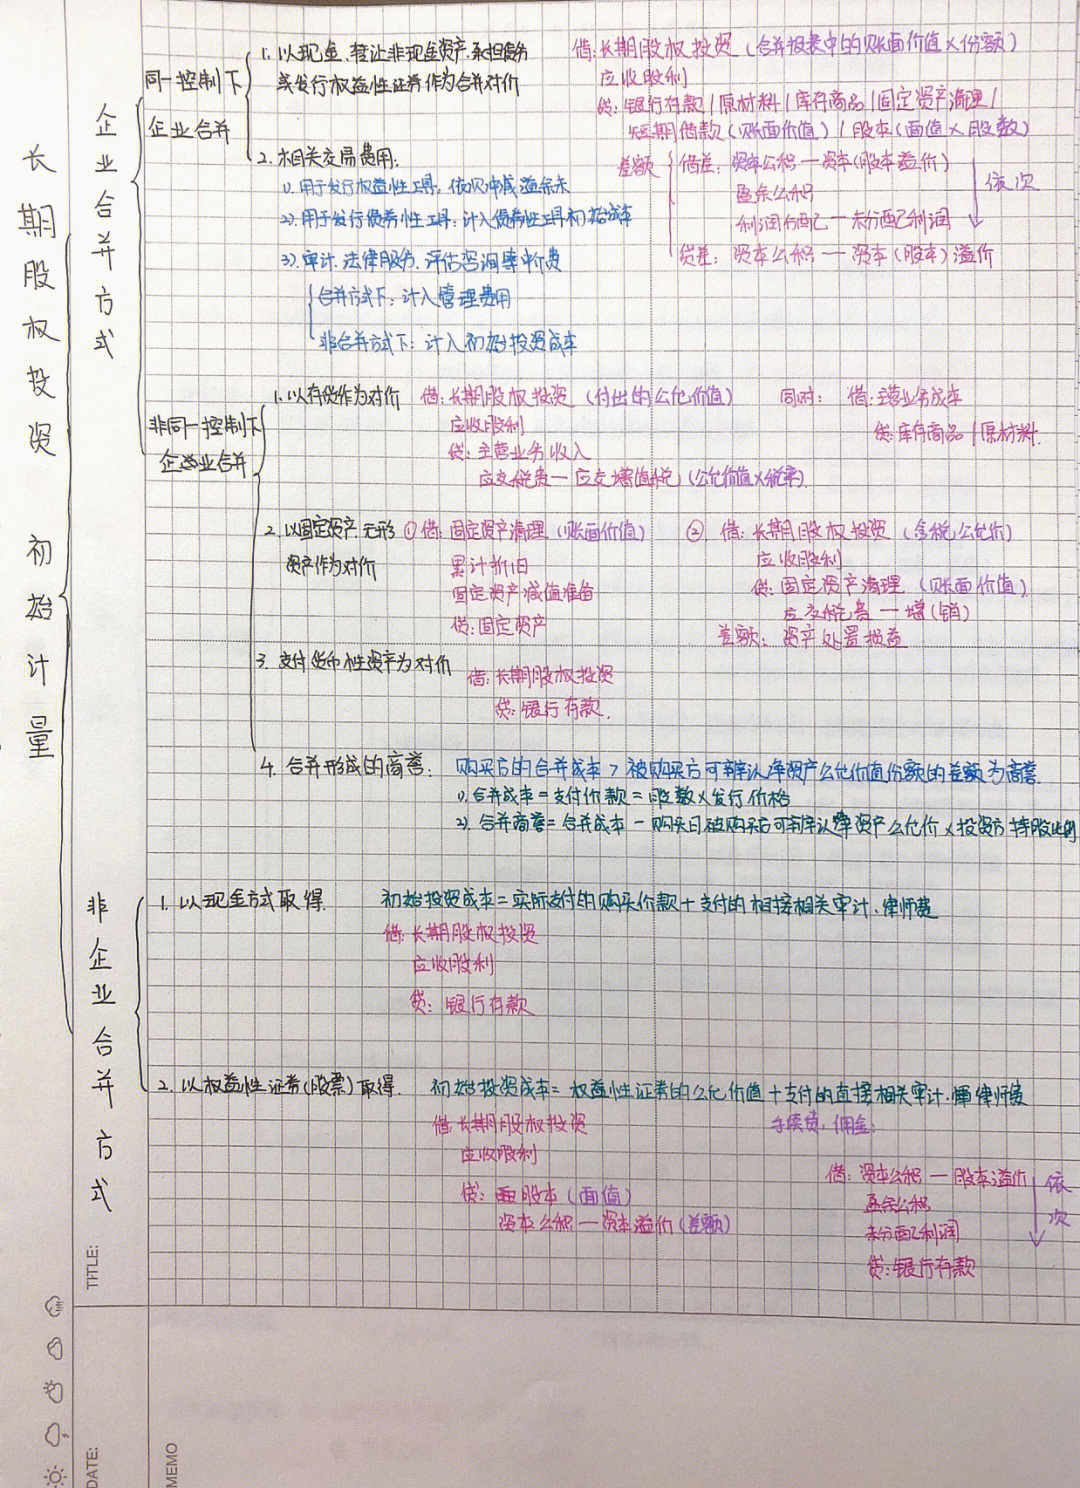 长期股权投资 初始计量
企业合并方式
同一控制下
企业合并
1. 以现金、转让非现金资产、承担债务
或发行权益性证券作为合并对价
借: 长期股权投资 (合并报表中的账面价值×份额)
应收股利
贷: 银行存款 / 原材料 / 库存商品 / 固定资产清理 /
短期借款 (账面价值) / 股本 (面值×股数)
差额
借差: 资本公积 — 资本(股本溢价)
盈余公积
利润分配 — 未分配利润
依次
贷差: 资本公积 — 资本(股本)溢价
2. 相关交易费用:
1). 用于发行权益性工具: 依次冲减 盈余未
2). 用于发行债券性工具: 计入债券性工具初始成本
3). 审计、法律服务、评估咨询等中介费
合并方式下: 计入管理费用
非合并方式下: 计入初始投资成本
非同一控制下
企业合并
1. 以存货作为对价
借: 长期股权投资 (付出的公允价值)
应收股利
贷: 主营业务收入
应交税费 — 应交增值税 (公允价值×税率)
同时: 借: 主营业务成本
贷: 库存商品 / 原材料.
2. 以固定资产、无形
资产作为对价
① 借: 固定资产清理 (账面价值)
累计折旧
固定资产减值准备
贷: 固定资产
② 借: 长期股权投资 (含税公允价)
应收股利
贷: 固定资产清理 (账面价值)
应交税费 — 增(销)
差额: 资产处置损益
3. 支付货币性资产为对价
借: 长期股权投资
贷: 银行存款.
4. 合并形成的商誉: 购买方的合并成本 > 被购买方可辨认净资产公允价值份额的差额为商誉.
1). 合并成本 = 支付价款 = 股数×发行价格
2). 合并商誉 = 合并成本 - 购买日被购买方可辨认净资产公允价×投资方持股比例
非企业合并方式
1. 以现金方式取得.
初始投资成本 = 实际支付的购买价款 + 支付的相接相关审计、律师费
借: 长期股权投资
应收股利
贷: 银行存款
2. 以权益性证券(股票)取得.
初始投资成本 = 权益性证券的公允价值 + 支付的直接相关审计、律师费
借: 长期股权投资
应收股利
贷: 股本 (面值)
资本公积 — 资本溢价 (差额)
手续费、佣金:
借: 资本公积 — 股本溢价
盈余公积
未分配利润
贷: 银行存款
依次
TITLE:
DATE:
MEMO